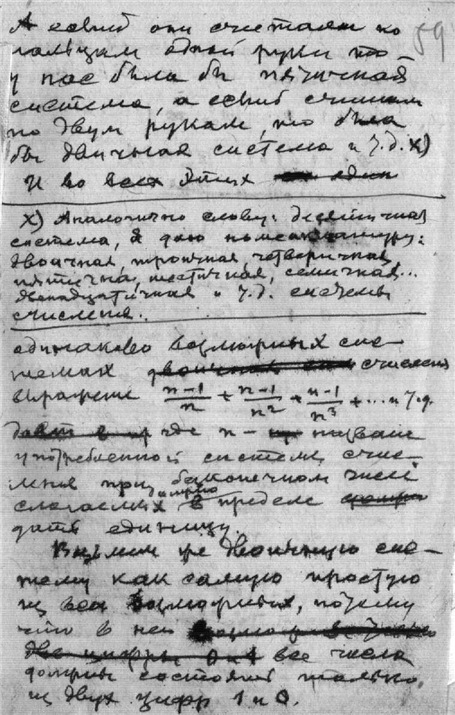 А если б они считали по 59
пальцам одной руки то
у нас была бы пятичная
система, а если б считали
по двум рукам, то была
бы двичная система и т.д. х)
И во всех этих один
х) Аналогично слову: десятичная
система, я даю номенклатуру:
двоичная, троичная, четверичная,
пятична, шестичная, семичная...
двенадцатичная и т.д. системы
счисления.
одинаково возможных сис-
темах двоичная счисления
выражение n-1/n + n-1/n² + n-1/n³ + ... и т.д.
дает в где n - название
употребленной системы счис-
ления при бесконечном числе
слагаемых должно в пределе
дать единицу.
Возьмем же двоичную сис-
тему как самую простую
из всех возможных, потому
что в ней
две цифры 0 и 1 все числа
должны состоять только
из двух цифр 1 и 0.